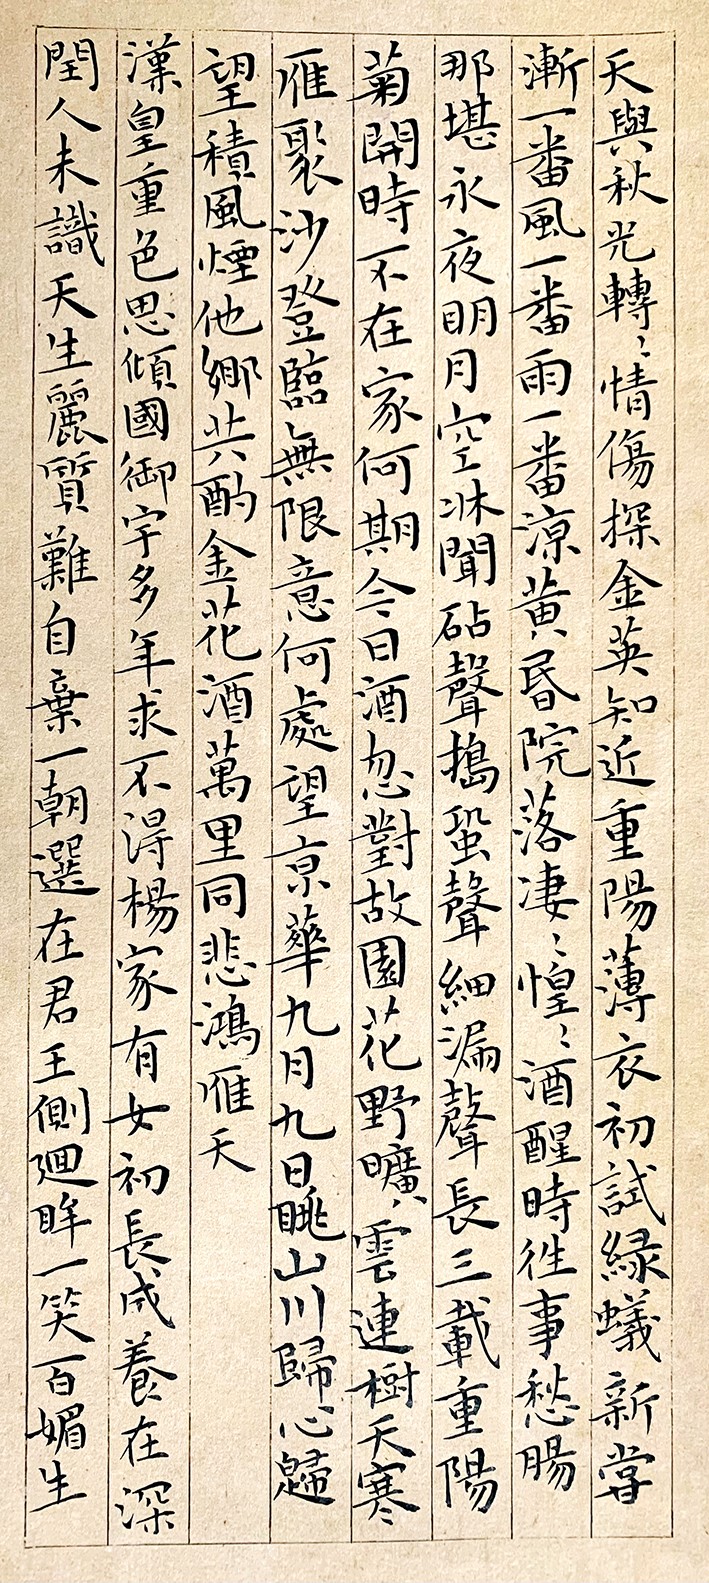 天與秋光轉〻情傷探金英知近重陽薄衣初試緑蟻新嘗
漸一番風一番雨一番涼黄昏院落凄〻惶〻酒醒時往事愁腸
那堪永夜明月空牀聞砧聲搗蛩聲細漏聲長三載重陽
菊開時不在家何期今日酒忽對故園花野曠雲連樹天寒
雁聚沙登臨無限意何處望京華九月九日眺山川歸心歸
望積風煙他鄉共酌金花酒萬里同悲鴻雁天
漢皇重色思傾國御宇多年求不得楊家有女初長成養在深
閏人未識天生麗質難自棄一朝選在君王側迴眸一笑百媚生